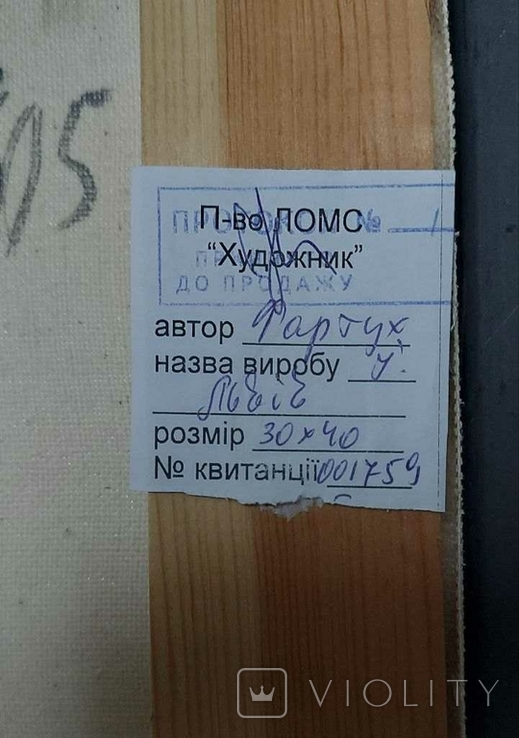 05
П-во ЛОМС
"Художник"
ПРОТОКОЛ № 1
ДО ПРОДАЖУ
автор Фартух
назва виробу У.
Львів
розмір 30х40
№ квитанції 001759
VIOLITY